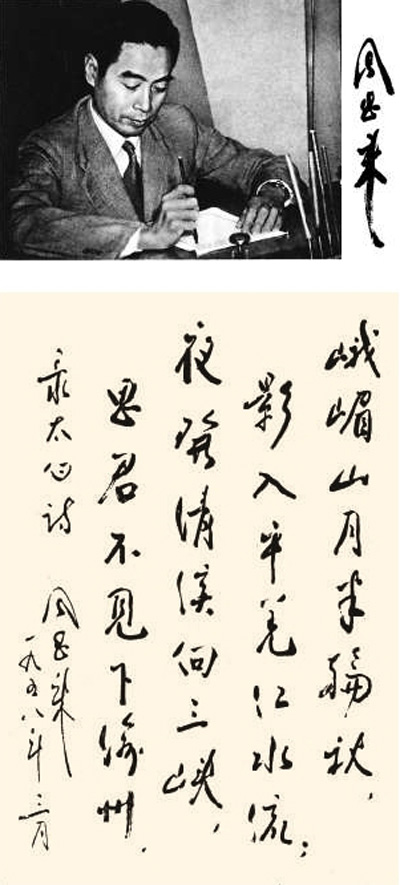 周恩来
峨嵋山月半轮秋，
影入平羌江水流；
夜發清溪向三峡，
思君不見下渝州．
录太白诗
周恩来
一九五八年三月